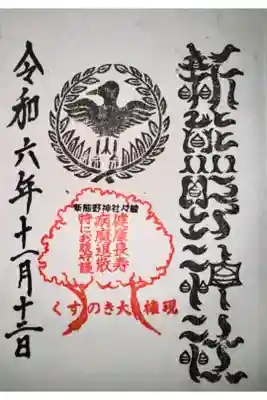 新熊野神社
新熊野神社
健康長寿
病魔退散
特にお腹守護
くすのき大権現
令和六年十一月十三日